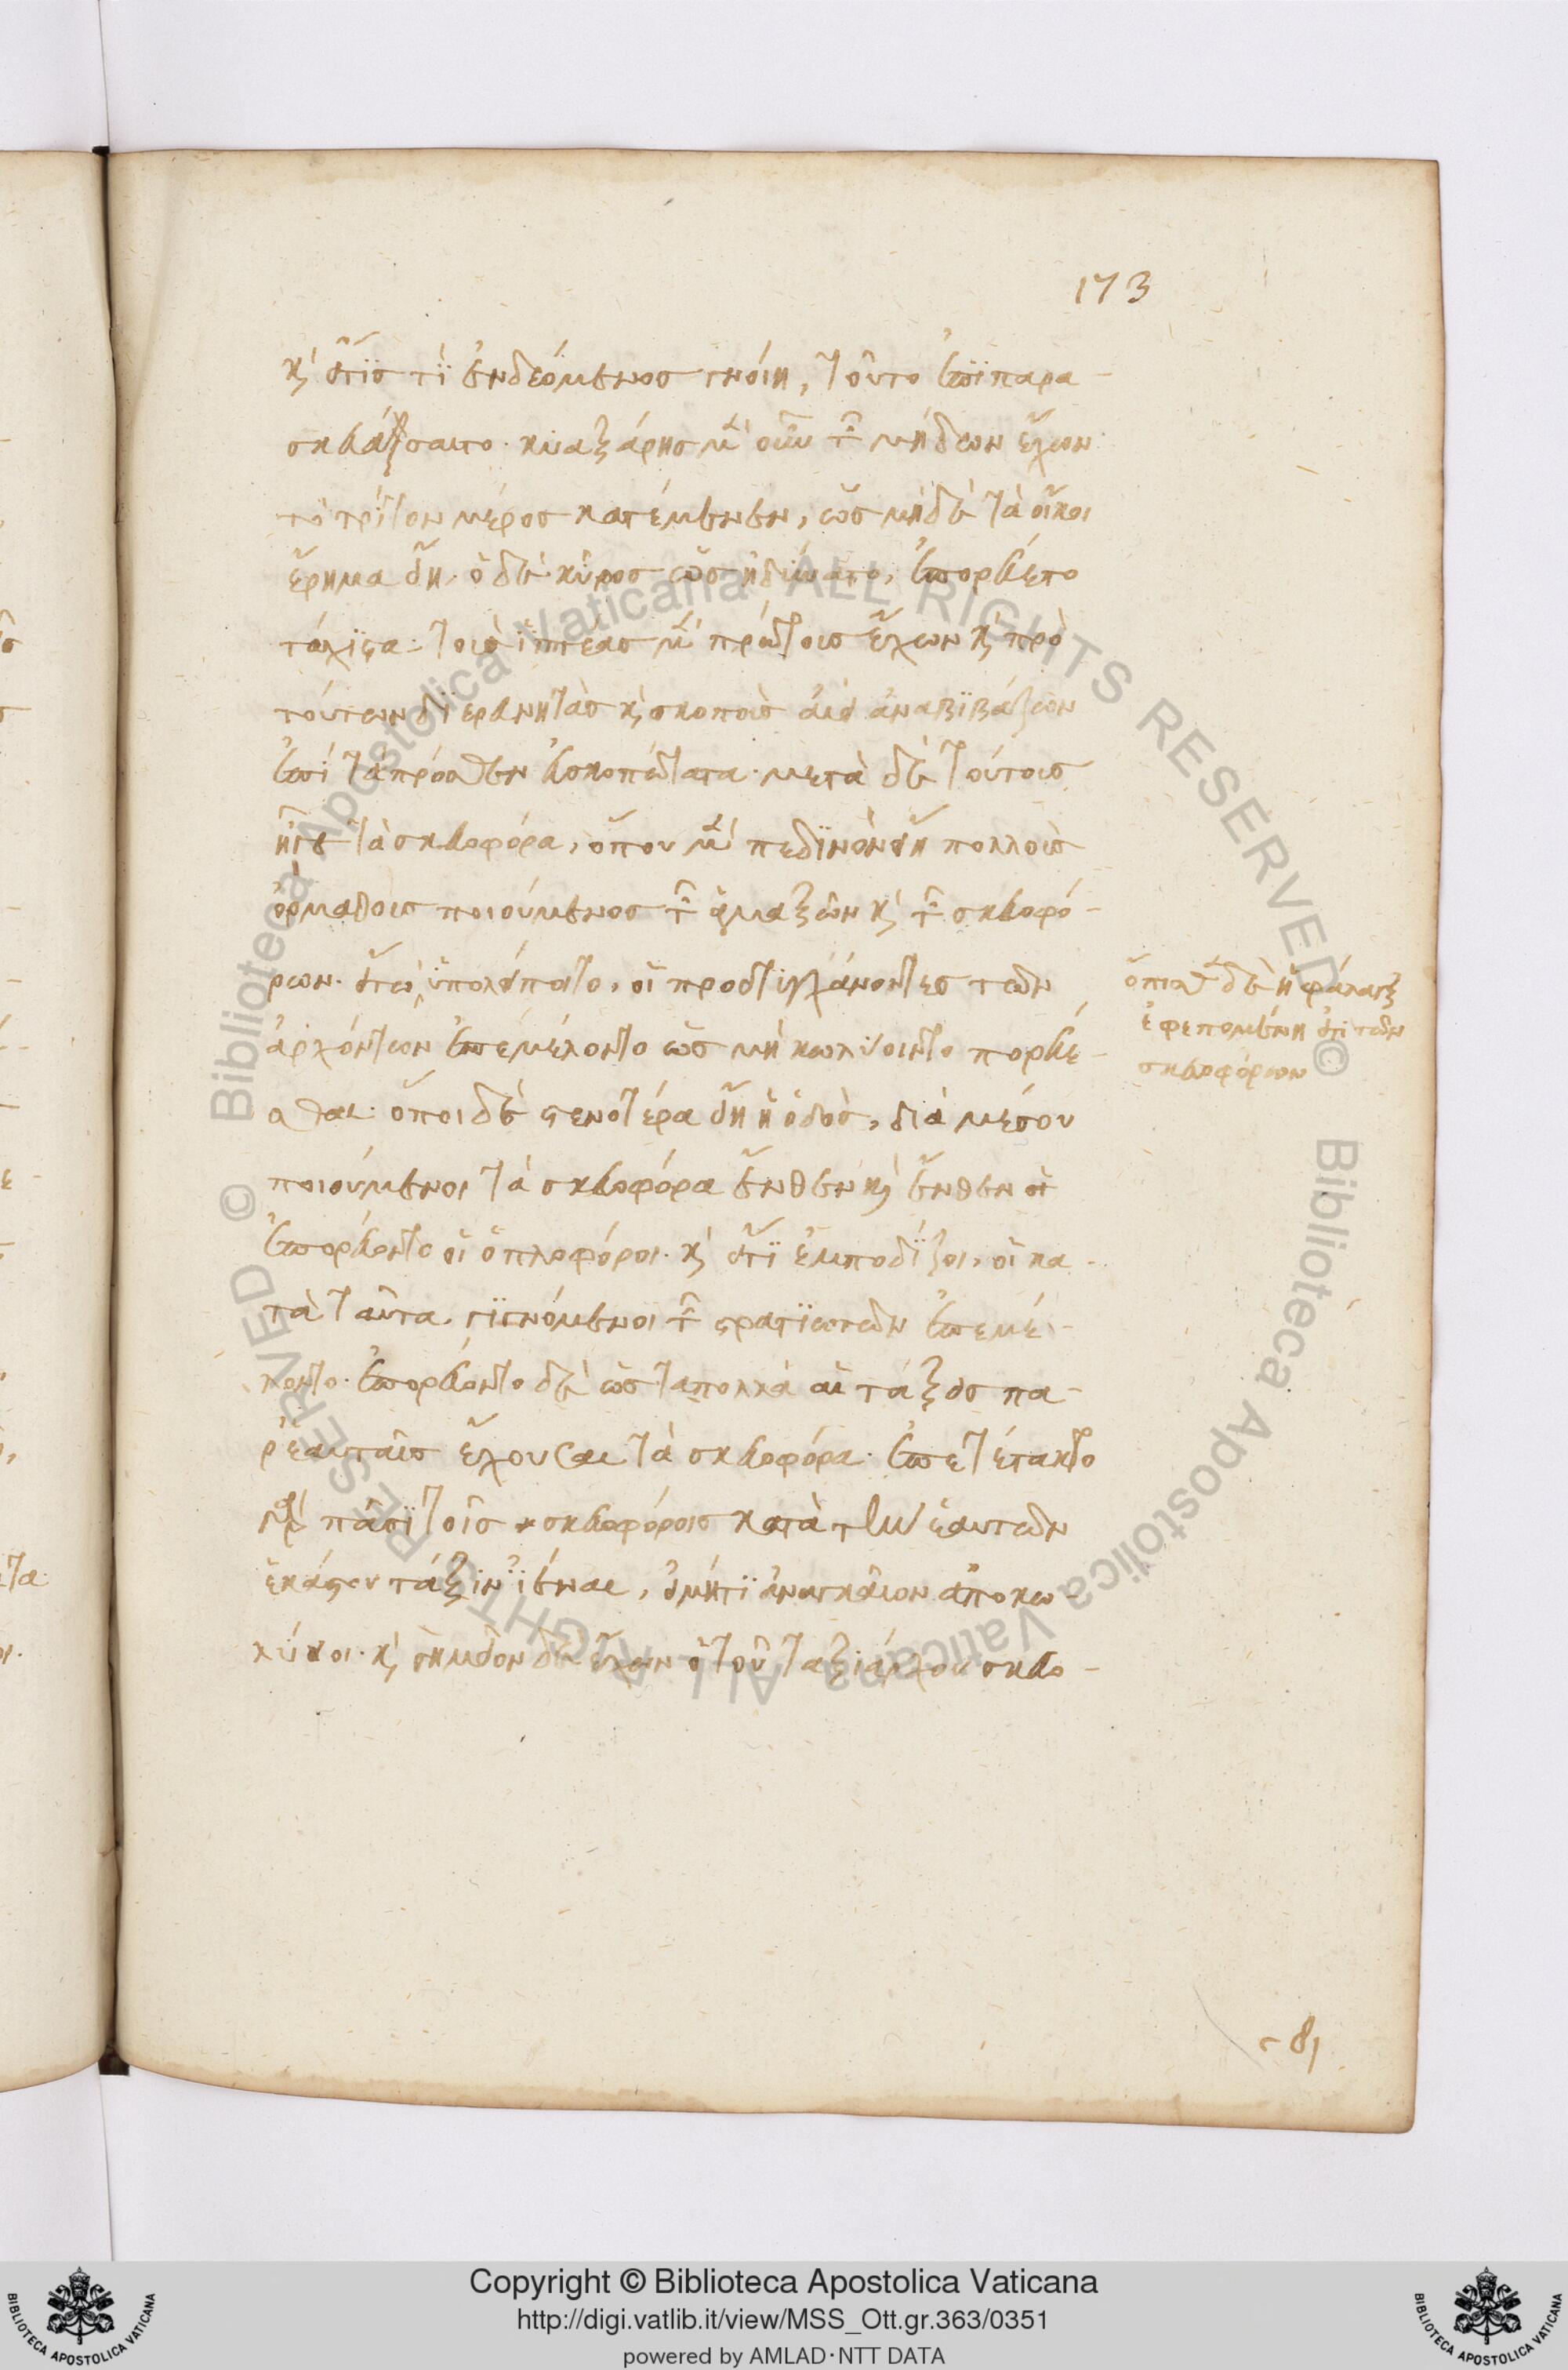 173
καὶ εἴτις τι ἐνδεόμενος γνοίη, τοῦτο ἐπιπαρα-
σκευάσαιτο. κυαξάρης μὲν οὖν τῶν μήδων ἔχων
τὸ τρίτον μέρος κατέμενεν, ὡς μηδὲ τὰ οἴκοι
ἔρημα εἴη. ὁ δὲ κῦρος ὡς ἠδύνατο, ἐπορεύετο
τάχιστα. τοὺς ἱππέας μὲν πρώτους ἔχων καὶ πρὸ
τούτων διερευνητὰς καὶ σκοποὺς αἰεὶ ἀναβιβάζων
ἐπὶ τὰ πρόσθεν εὐσκοπώτατα. μετὰ δὲ τούτους
ἦγε τὰ σκευοφόρα, ὅπου μὲν πεδινὸν εἴη πολλοὺς
ὁρμαθοὺς ποιούμενος τῶν ἁμαξῶν καὶ τῶν σκευοφό-
ρων. εἴτω ὑπολείποιτο, οἱ προστυγχάνοντες τῶν
ἀρχόντων ἐπεμέλοντο ὡς μὴ κωλύοιντο πορεύε-
σθαι. ὅποι δὲ στενοτέρα εἴη ἡ ὁδὸς, διὰ μέσου
ποιούμενοι τὰ σκευοφόρα ἔνθεν καὶ ἔνθεν οἱ
ἐπορεύοντο οἱ ὁπλοφόροι. καὶ εἴτι ἐμποδίζοι, οἱ κα-
τὰ ταῦτα γιγνόμενοι τῶν στρατιωτῶν ἐπεμέ-
λοντο. ἐπορεύοντο δὲ ὡς ταπολλὰ αἱ τάξεις πα-
ρ' ἑαυταῖς ἔχουσαι τὰ σκευοφόρα. ἐπετέτακτο
γὰρ πᾶσι τοῖς σκευοφόροις κατὰ τὴν ἑαυτῶν
ἑκάστου τάξιν ἰέναι, εἰμήτι ἀναγκαῖον ἀποκω-
λύει οι. καὶ σημεῖον δὲ ἔχων ὁ τοῦ ταξιάρχου σκευο-
ὄπισθεν δὲ ἡ φάλαγξ
ἐφεπομένη ἐπὶ τῶν
σκευοφόρων
81
Copyright © Biblioteca Apostolica Vaticana
http://digi.vatlib.it/view/MSS_Ott.gr.363/0351
powered by AMLAD·NTT DATA